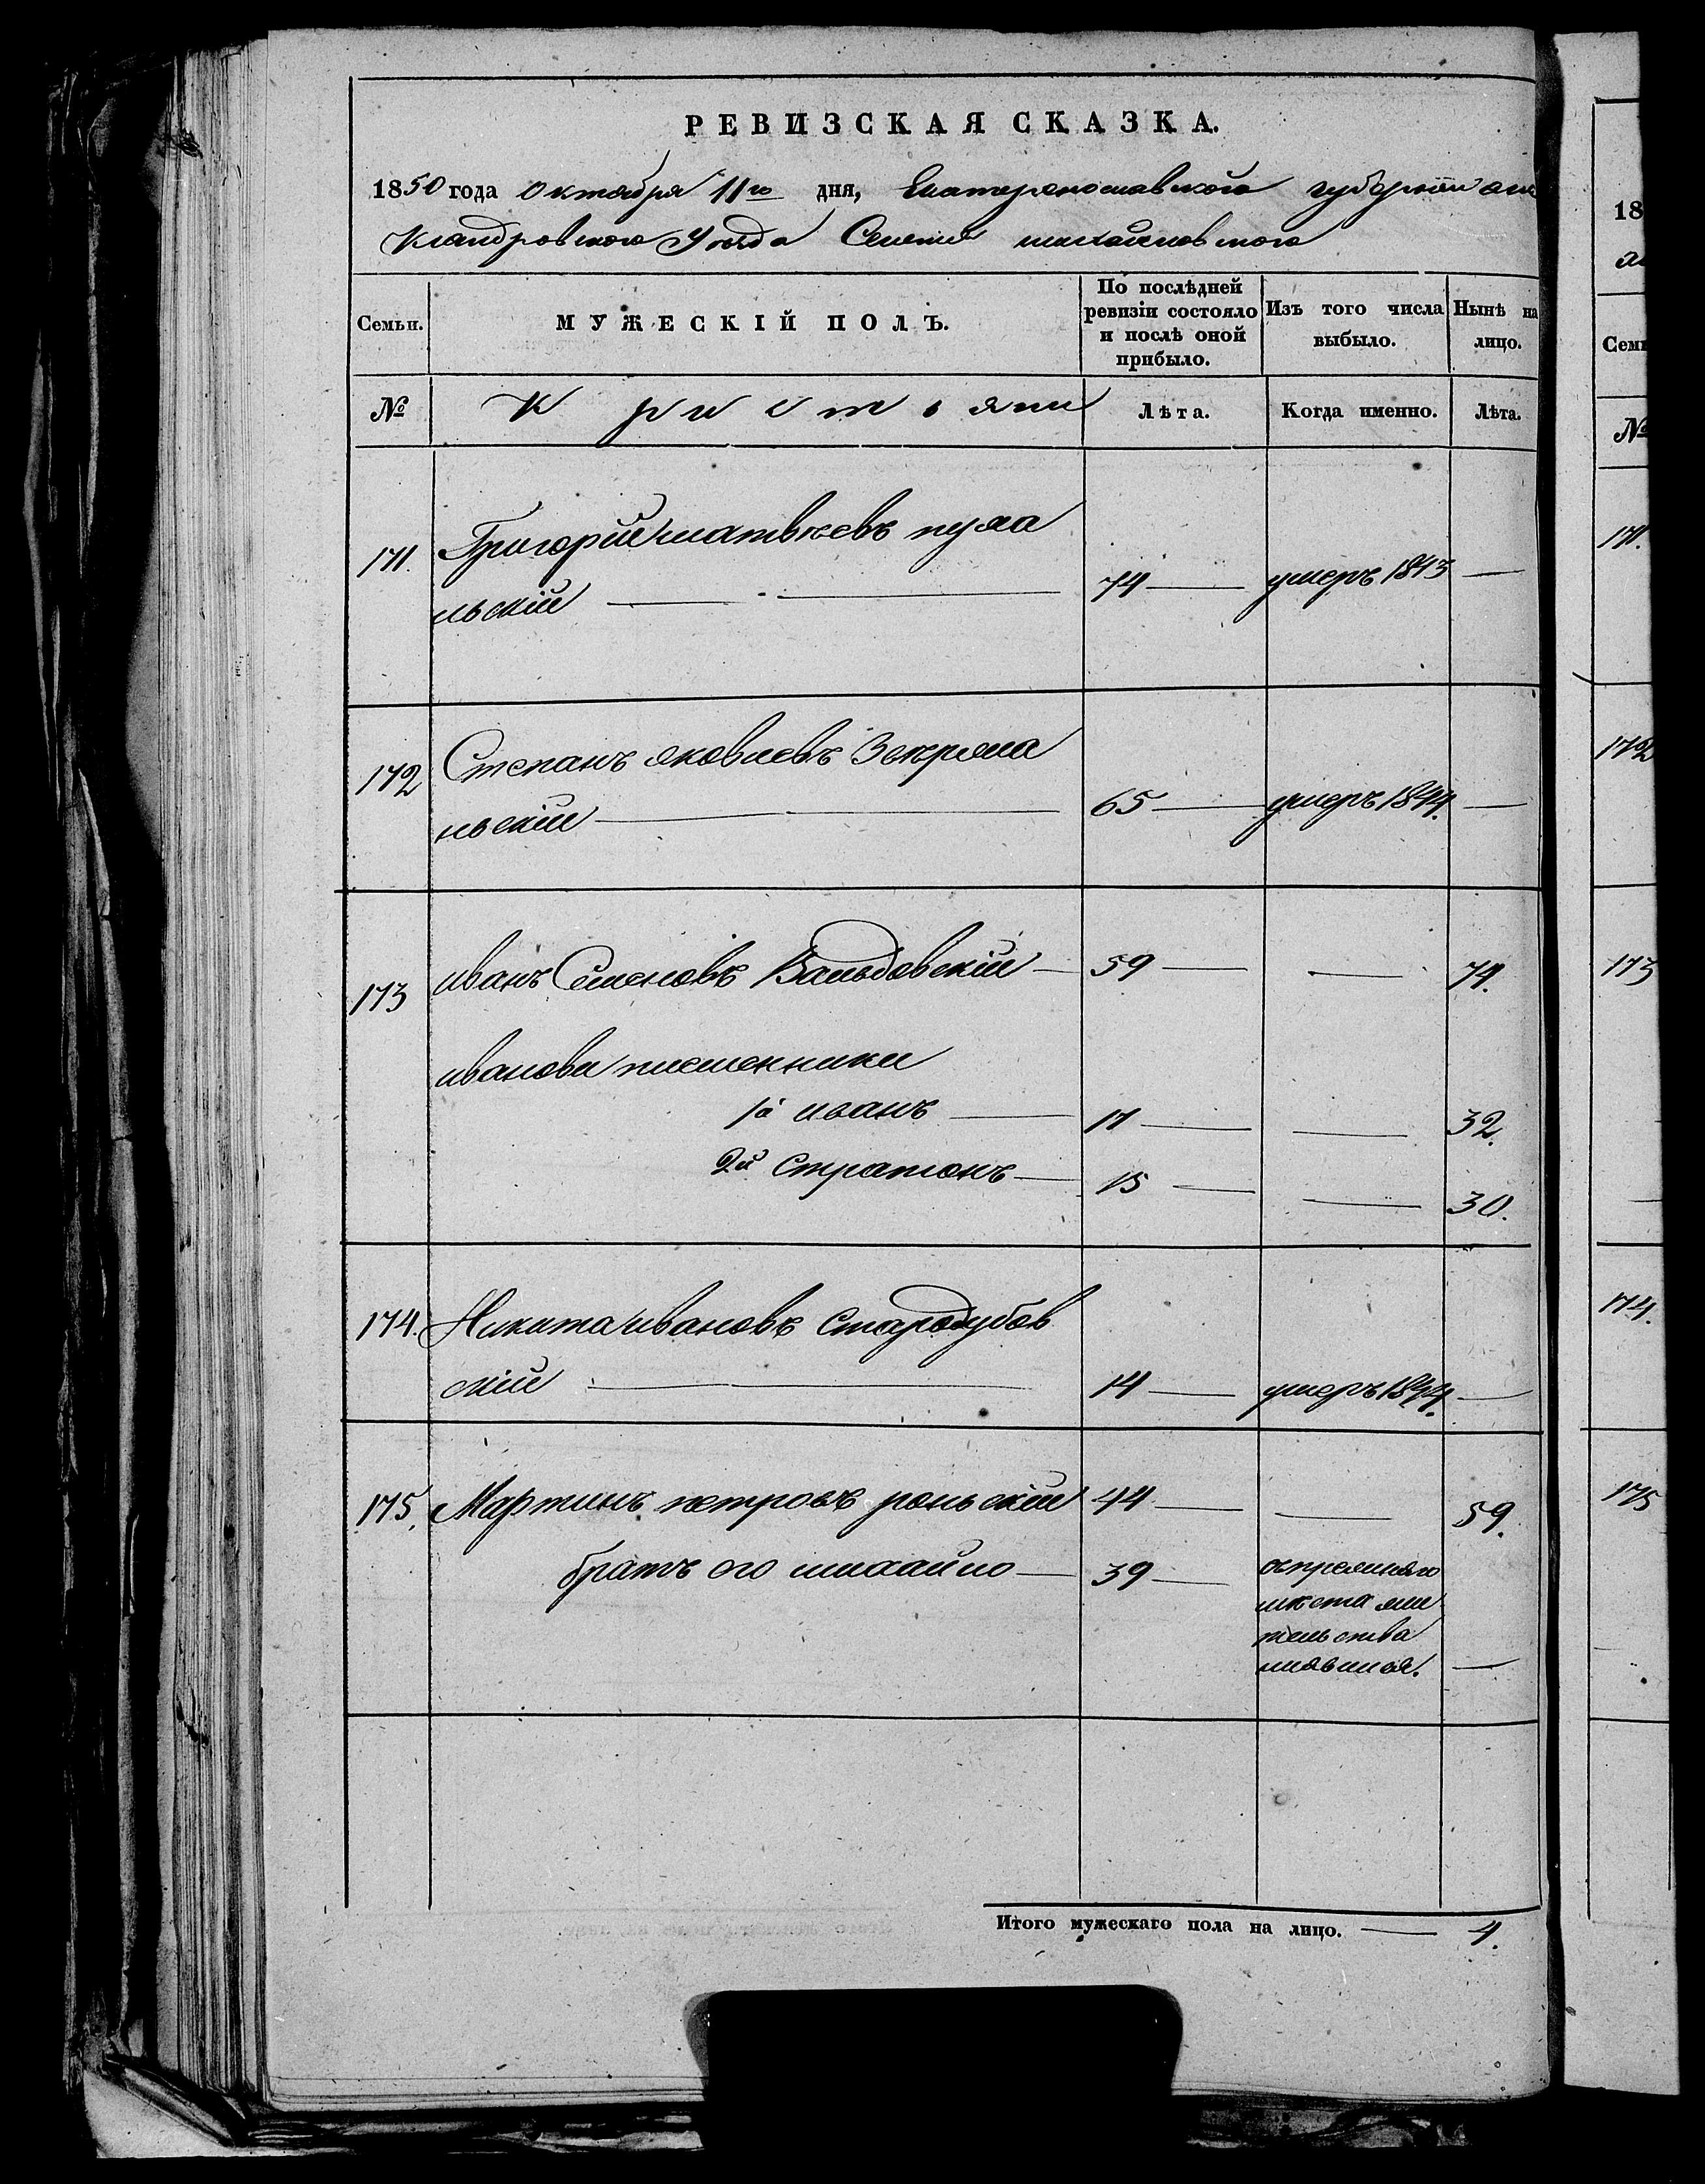 РЕВИЗСКАЯ СКАЗКА.
1850 года октября 11го дня, Екатеринославской губернии алек
сандровского Уезда Селения михайловского
Семьи. МУЖЕСКІЙ ПОЛЪ. По послѣдней ревизіи состояло и послѣ оной прибыло. Изъ того числа выбыло. Нынѣ на лицо.
№ Кристьяни Лѣта. Когда именно. Лѣта.
171. Григорий матвѣевъ пуха
льскій 74 умеръ 1843
172 Степанъ яковлевъ
ньскій 65 умеръ 1844.
173 иванъ Семеновъ 59 74.
иванови племенники
1й иванъ 17 32.
2й Стратонъ 15 30.
174. Никита ивановъ Стародубов
скій 14 умеръ 1844.
175. Мартинъ петровъ рольскій 44 59.
братъ его михайло 39
мѣста жи
тельства
Итого мужескаго пола на лицо. 4.
18
Семь
№
171.
172
173
174.
175